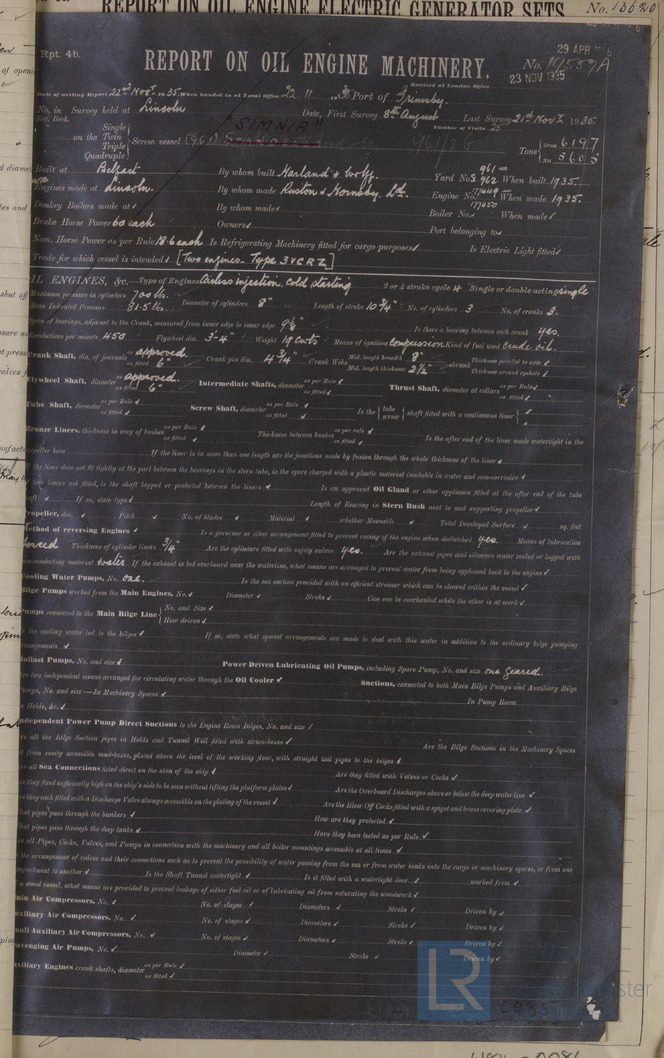 REPORT ON OIL ENGINE ELECTRIC GENERATOR SETS.
No. 13620
Rpt. 4b.
29 APR
REPORT ON OIL ENGINE MACHINERY.
No. 19557A
23 NOV 1935
Received at London Office
Date of writing Report 22nd Novr 1935 When handed in at Local Office 22 11 Port of Grimsby.
No. in Survey held at Lincoln Date, First Survey 8th August Last Survey 21st Novr 1935
Reg. Book. Number of Visits 25
"SIMNIA"
Single
on the Twin
Triple
Quadruple
Screw vessel (961)
Tons Gross 6197
Net 3603
Built at Belfast By whom built Harland & Wolff. Yard No. 961 962 When built 1935.
Engines made at Lincoln. By whom made Ruston & Hornsby, Ltd. Engine No. 177449 177450 When made 1935.
Donkey Boilers made at By whom made Boiler No. When made
Brake Horse Power 60 each Owners Port belonging to
Nom. Horse Power as per Rule 18.6 each Is Refrigerating Machinery fitted for cargo purposes Is Electric Light fitted
Trade for which vessel is intended [Two engines - Type 3VCRZ]
OIL ENGINES, &c.—Type of Engines Airless injection, cold starting 2 or 4 stroke cycle 4 Single or double acting single
Maximum pressure in cylinders 700 lbs. Diameter of cylinders 8" Length of stroke 10¾" No. of cylinders 3 No. of cranks 3.
Mean Indicated Pressure 81.5 lbs.
Span of bearings, adjacent to the Crank, measured from inner edge to inner edge 9⅞" Is there a bearing between each crank yes.
Revolutions per minute 450 Flywheel dia. 3'-4" Weight 19 cwts Means of ignition compression Kind of fuel used crude oil.
Crank Shaft, dia. of journals as per Rule approved. as fitted 6" Crank pin dia. 4¾" Crank Webs Mid. length breadth 8" Mid. length thickness 2½" shrunk Thickness parallel to axis Thickness around eyehole
Flywheel Shaft, diameter as per Rule approved. as fitted 6" Intermediate Shafts, diameter as per Rule as fitted Thrust Shaft, diameter at collars as per Rule as fitted
Tube Shaft, diameter as per Rule as fitted Screw Shaft, diameter as per Rule as fitted Is the tube screw shaft fitted with a continuous liner
Bronze Liners, thickness in way of bushes as per Rule as fitted Thickness between bushes as per rule as fitted Is the after end of the liner made watertight in the
propeller boss If the liner is in more than one length are the junctions made by fusion through the whole thickness of the liner
If the liner does not fit tightly at the part between the bearings in the stern tube, is the space charged with a plastic material insoluble in water and non-corrosive
If two liners are fitted, is the shaft lapped or protected between the liners Is an approved Oil Gland or other appliance fitted at the after end of the tube
shaft If so, state type Length of Bearing in Stern Bush next to and supporting propeller
Propeller, dia. Pitch No. of blades Material whether Moveable Total Developed Surface sq. feet
Method of reversing Engines Is a governor or other arrangement fitted to prevent racing of the engine when declutched yes. Means of lubrication
forced Thickness of cylinder liners ¾" Are the cylinders fitted with safety valves yes. Are the exhaust pipes and silencers water cooled or lagged with
non-conducting material water If the exhaust is led overboard near the waterline, what means are arranged to prevent water from being syphoned back to the engine
Cooling Water Pumps, No. one. Is the sea suction provided with an efficient strainer which can be cleared within the vessel
Bilge Pumps worked from the Main Engines, No. Diameter Stroke Can one be overhauled while the other is at work
Pumps connected to the Main Bilge Line No. and Size
How driven
Is the cooling water led to the bilges If so, state what special arrangements are made to deal with this water in addition to the ordinary bilge pumping
arrangements
Ballast Pumps, No. and size Power Driven Lubricating Oil Pumps, including Spare Pump, No. and size one geared.
Are two independent means arranged for circulating water through the Oil Cooler Suctions, connected to both Main Bilge Pumps and Auxiliary Bilge
Pumps, No. and size:—In Machinery Spaces In Pump Room
In Holds, &c.
Independent Power Pump Direct Suctions to the Engine Room Bilges, No. and size
Are all the Bilge Suction pipes in Holds and Tunnel Well fitted with strum-boxes Are the Bilge Suctions in the Machinery Spaces
led from easily accessible mud-boxes, placed above the level of the working floor, with straight tail pipes to the bilges
Are all Sea Connections fitted direct on the skin of the ship Are they fitted with Valves or Cocks
Are they fixed sufficiently high on the ship's side to be seen without lifting the platform plates Are the Overboard Discharges above or below the deep water line
Are they each fitted with a Discharge Valve always accessible on the plating of the vessel Are the Blow Off Cocks fitted with a spigot and brass covering plate
What pipes pass through the bunkers How are they protected
What pipes pass through the deep tanks Have they been tested as per Rule
Are all Pipes, Cocks, Valves, and Pumps in connection with the machinery and all boiler mountings accessible at all times
Is the arrangement of valves and their connections such as to prevent the possibility of water passing from the sea or from water tanks into the cargo or machinery spaces, or from one
compartment to another Is the Shaft Tunnel watertight Is it fitted with a watertight door worked from
If a wood vessel, what means are provided to prevent leakage of either fuel oil or of lubricating oil from saturating the woodwork
Main Air Compressors, No. No. of stages Diameters Stroke Driven by
Auxiliary Air Compressors, No. No. of stages Diameters Stroke Driven by
Small Auxiliary Air Compressors, No. No. of stages Diameters Stroke Driven by
Scavenging Air Pumps, No. Diameter Stroke Driven by
Auxiliary Engines crank shafts, diameter as per Rule as fitted
LR